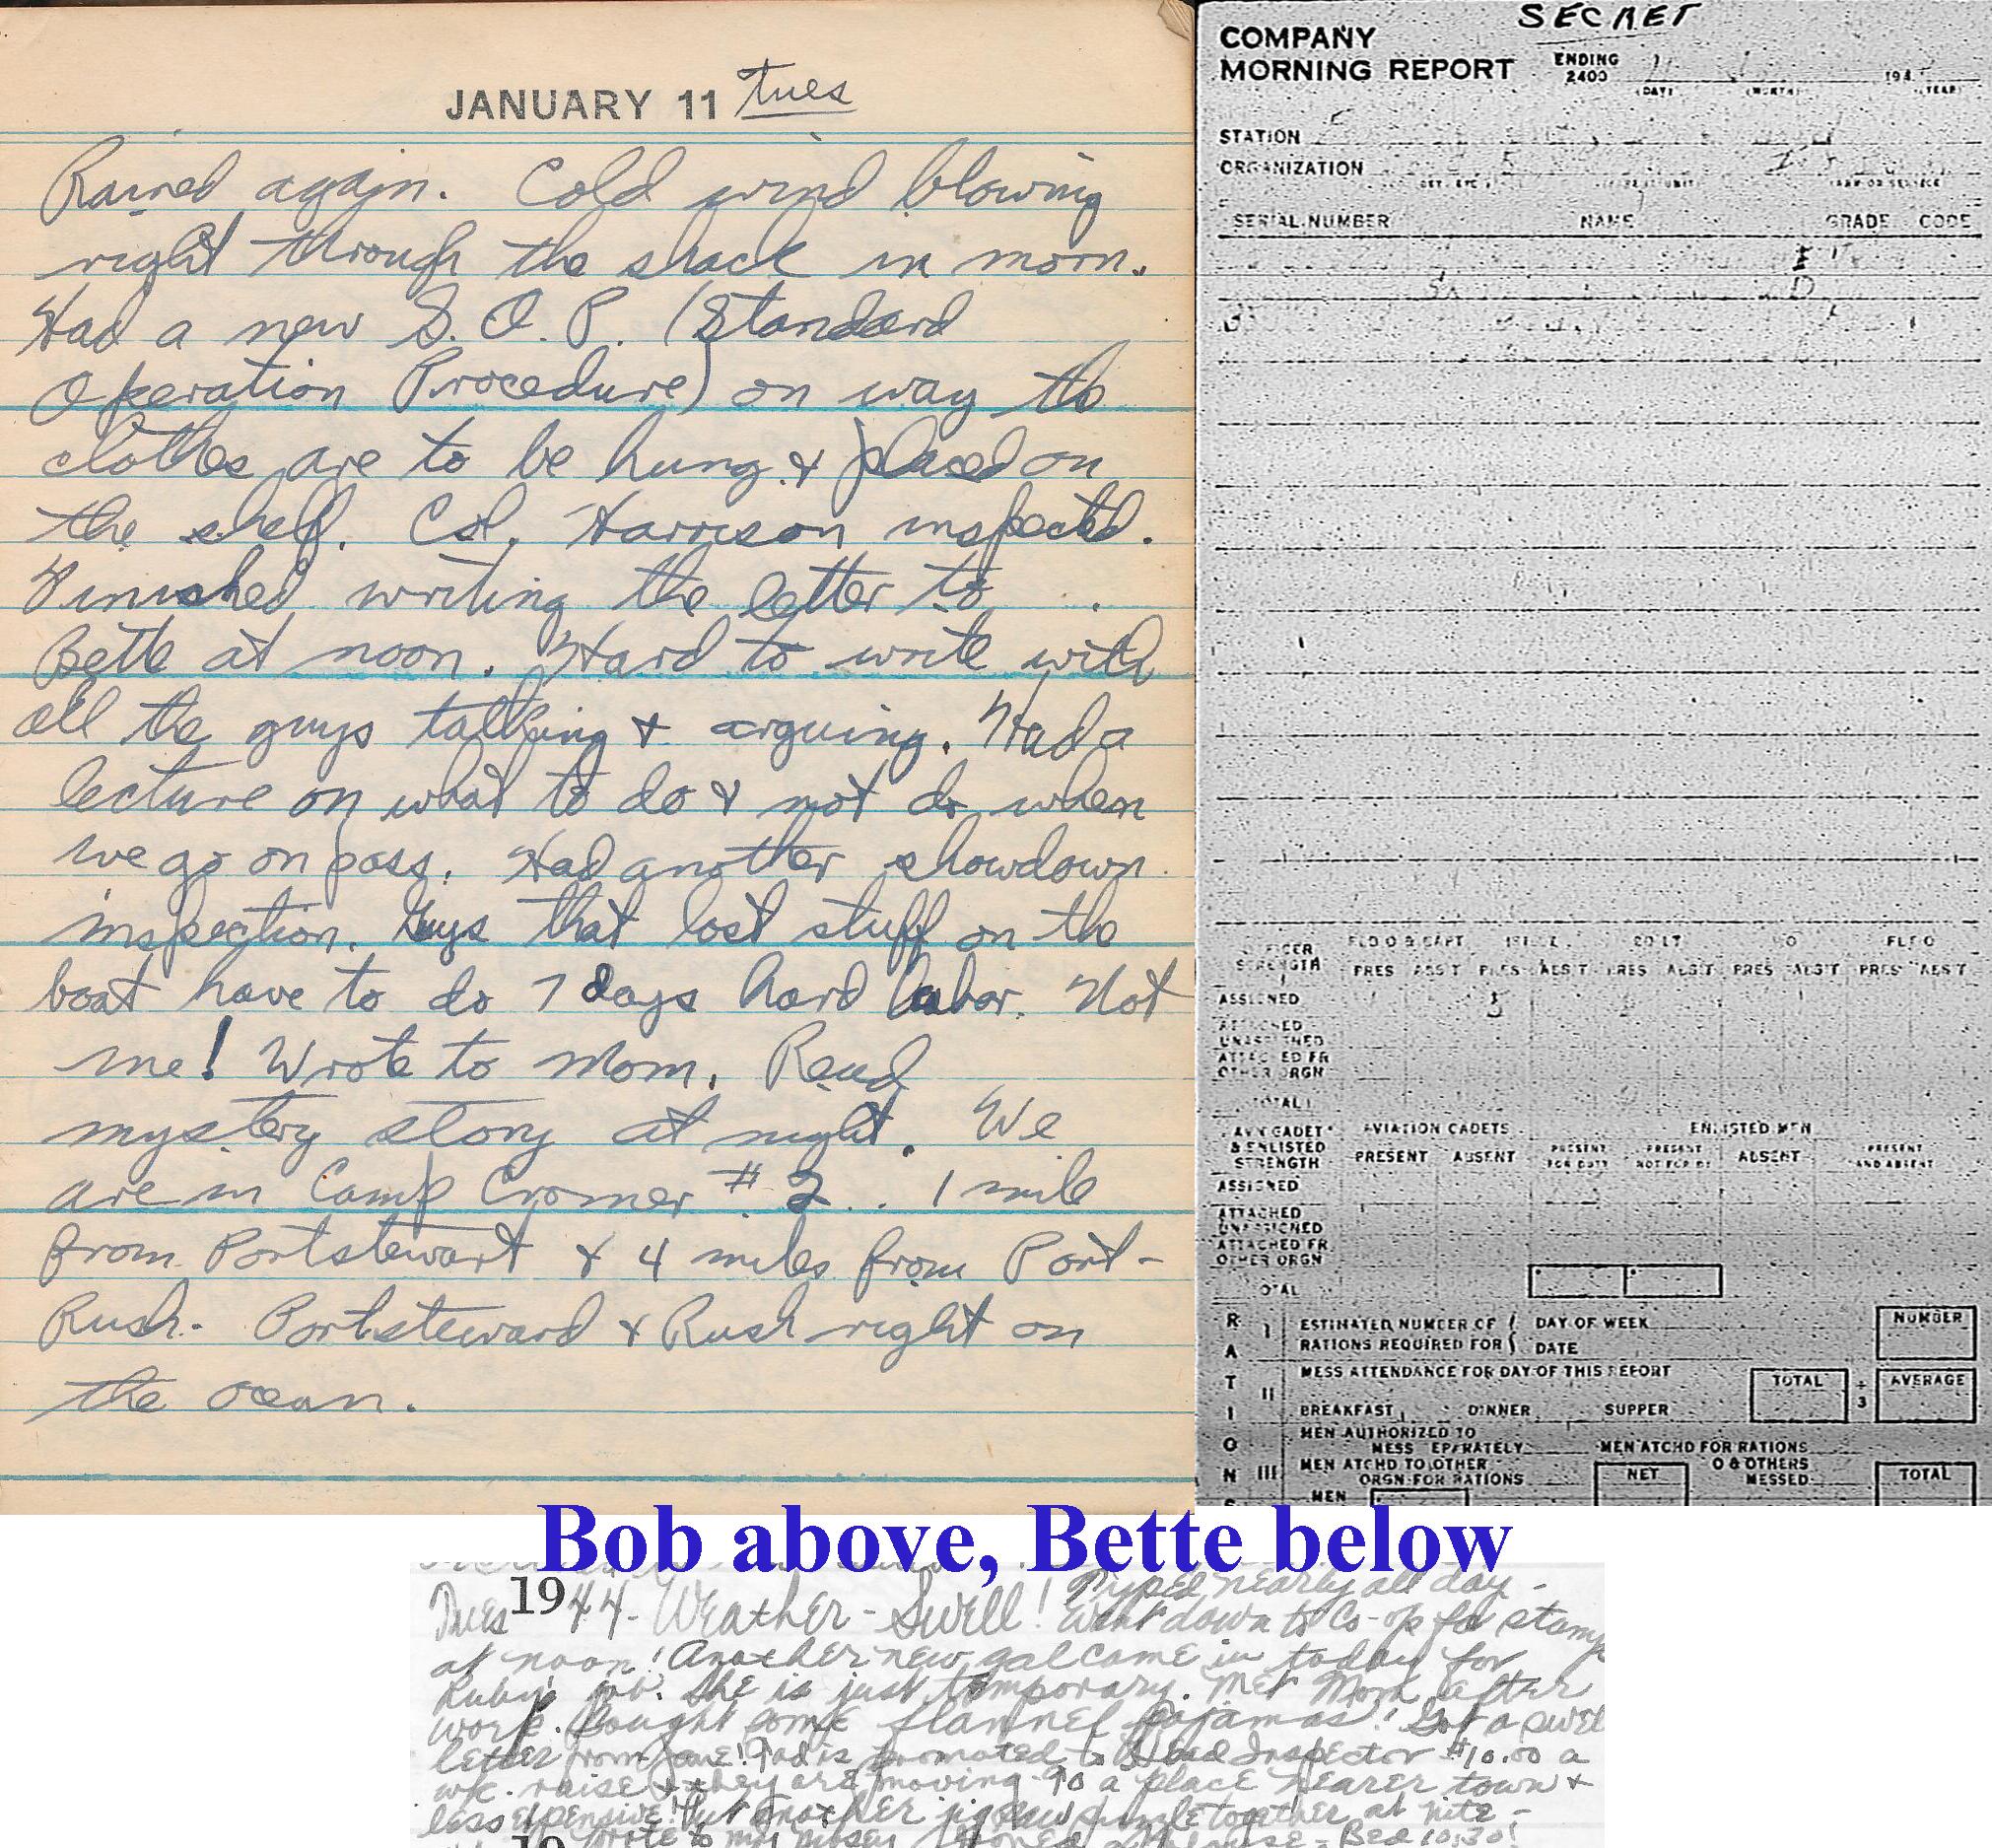 JANUARY 11 tues
Rained again. Cold wind blowing
right through the shack in morn.
Had a new S.O.P. (Standard
Operation Procedure) on way the
clothes are to be hung & placed on
the shelf. Col. Harrison inspected.
Finished writing the letter to
Bette at noon. Hard to write with
all the guys talking & arguing. Had a
lecture on what to do & not do when
we go on pass. Had another showdown
inspection. Guys that lost stuff on the
boat have to do 7 days hard labor. Not
me! Wrote to Mom. Read
mystery story at night. We
are in Camp Cromer #2.. 1 mile
from Portstewart & 4 miles from Port-
Rush. Portsteward & Rush right on
the ocean.
SECRET
COMPANY
MORNING REPORT
ENDING
2400
194
(DAY) (MONTH) (YEAR)
STATION
ORGANIZATION
SERIAL NUMBER NAME GRADE CODE
OFFICER
STRENGTH
FLD O & CAPT 1ST LT 2D LT WO FLT O
PRES ABS'T PRES ABS'T PRES ABS'T PRES ABS'T PRES ABS'T
ASSIGNED
ATTACHED
UNASSIGNED
ATTACHED FR
OTHER ORGN
TOTAL
AVN CADET
& ENLISTED
STRENGTH
AVIATION CADETS ENLISTED MEN
PRESENT ABSENT PRESENT FOR DUTY PRESENT NOT FOR DY ABSENT PRESENT AND ABSENT
ASSIGNED
ATTACHED
UNASSIGNED
ATTACHED FR
OTHER ORGN
TOTAL
RATIONS
I ESTIMATED NUMBER OF DAY OF WEEK NUMBER
RATIONS REQUIRED FOR DATE
II MESS ATTENDANCE FOR DAY OF THIS REPORT TOTAL ÷ 3 AVERAGE
BREAKFAST DINNER SUPPER
III MEN AUTHORIZED TO
MESS SEPARATELY MEN ATCHD FOR RATIONS
MEN ATCHD TO OTHER
ORGN FOR RATIONS NET
& OTHERS
MESSED TOTAL
MEN
Bob above, Bette below
Tues 1944 - Weather - Swell! Typed nearly all day -
Went down to Co-op for stamps
at noon! Another new gal came in today for
Ruby's job. She is just temporary. Met Mom after
work. Bought some flannel pajamas! Got a swell
letter from Jane! Tad is promoted to Head Inspector $10.00 a
wk. raise & they are moving to a place nearer town &
less expensive! Put another jigsaw puzzle together at nite -
Wrote to Bed 10:30!